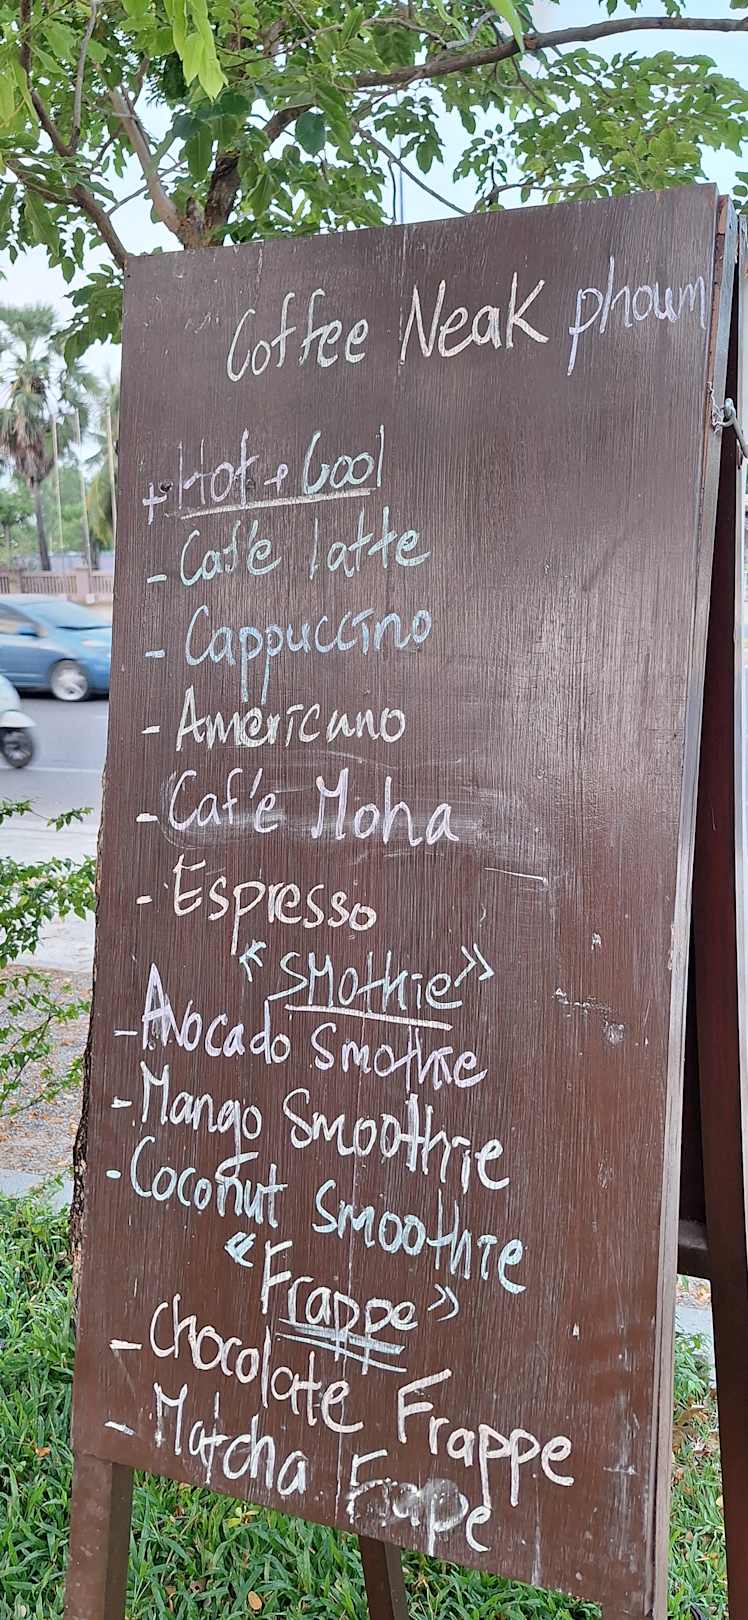 Coffee Neak phoum
+ Hot + Cool
- Caf'e latte
- Cappuccino
- Americano
- Caf'e Moha
- Espresso
« SMothie »
- Avocado Smothie
- Mango Smoothie
- Coconut Smoothie
« Frappe »
- Chocolate Frappe
- Matcha Frape